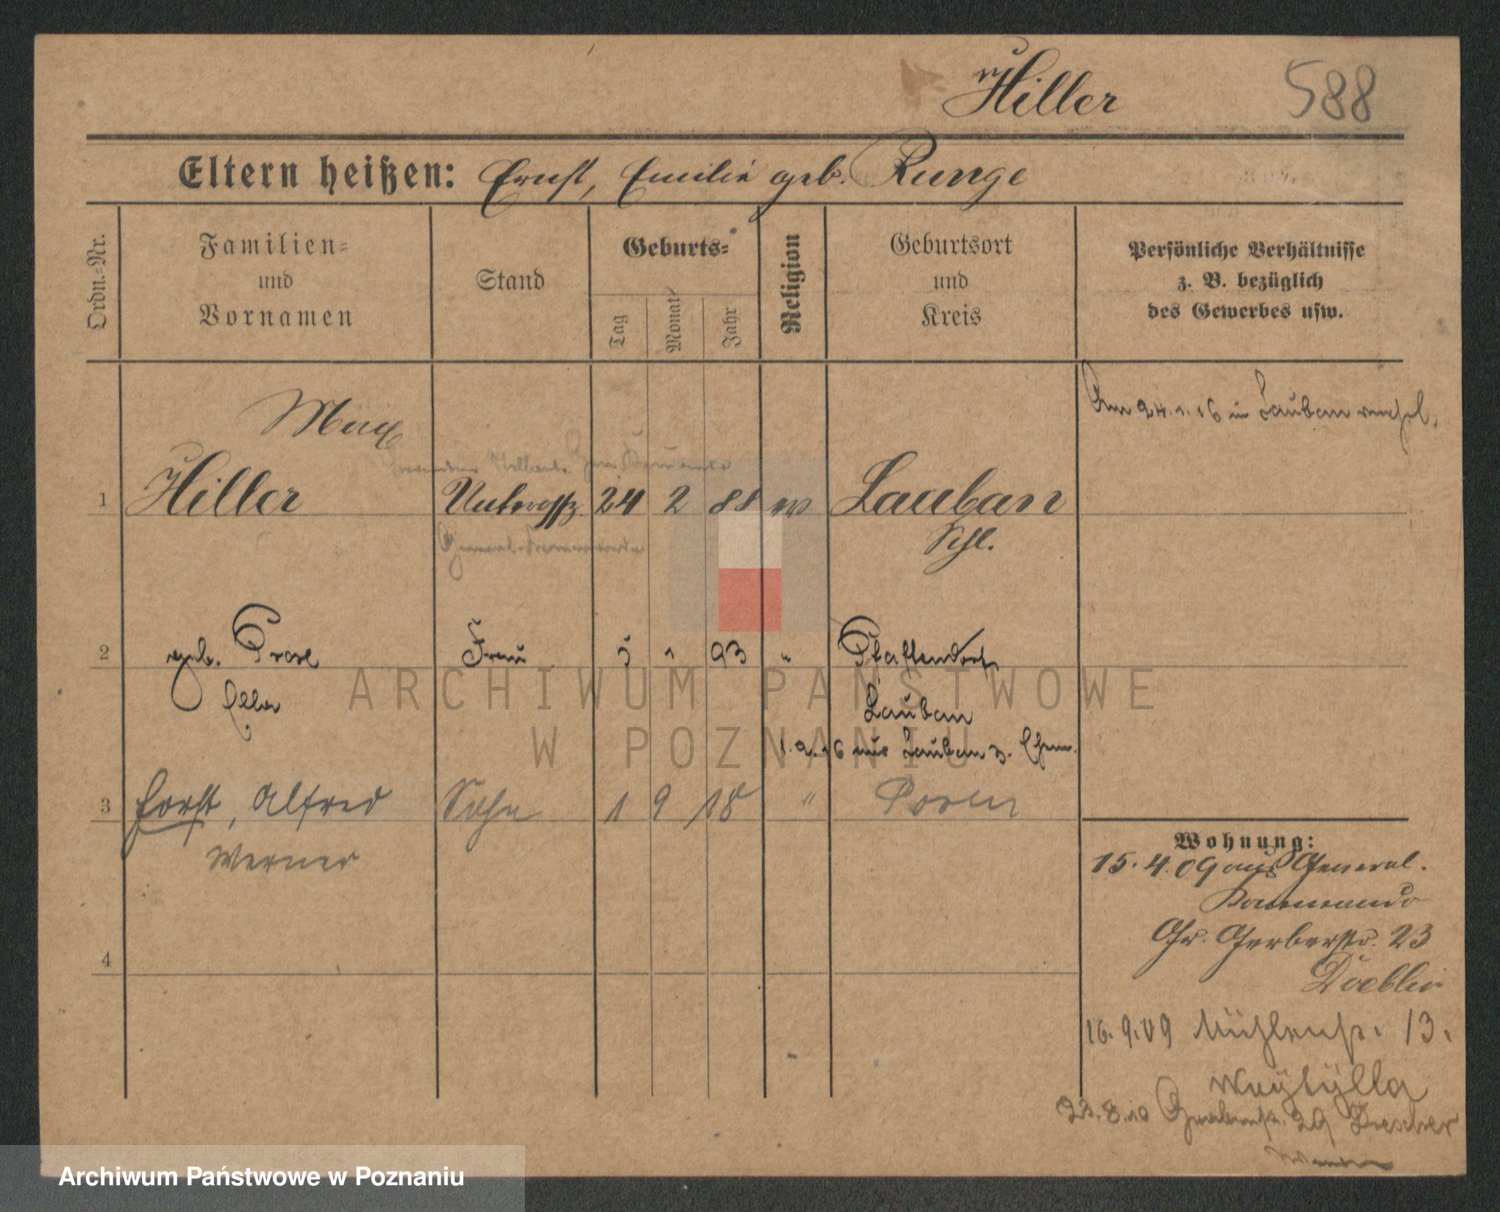 Hiller 588
Eltern heißen: Ernst, Emilie geb. Runge
Ordn.-Nr.
Familien-
und
Vornamen
Stand
Geburts-
Tag
Monat
Jahr
Religion
Geburtsort
und
Kreis
Persönliche Verhältnisse
z. B. bezüglich
des Gewerbes usw.
Am 24.1.16 in Lauban
Max
1 Hiller Unteroffz. 24 2 88 ev Lauban
Schl.
2 geb. Frau 93 " Pfaffendorf
Lauban
aus Lauban z. Ehem.
3 Horst, Alfred Sohn 1 9 18 " Posen
Werner
4
Wohnung:
15.4.09 aus General-
Kommando
Gr. Gerberstr. 23
Doebler
16.9.09 Mühlenstr. 13.
23.8.10 29 Drescher
ARCHIWUM PAŃSTWOWE
W POZNANIU
Archiwum Państwowe w Poznaniu